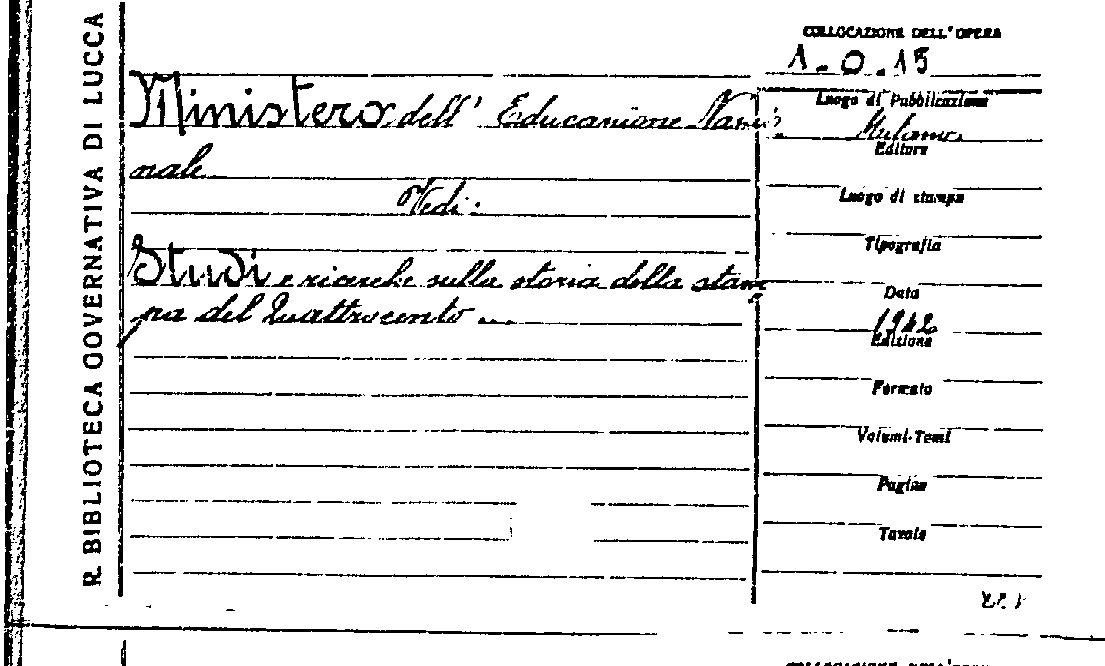 R. BIBLIOTECA GOVERNATIVA DI LUCCA
COLLOCAZIONE DELL'OPERA
1-0.15
Ministero dell' Educazione Nazio
nale
Vedi:
Studi e ricerche sulla storia della stam
pa del Quattrocento ...
Luogo di Pubblicazione
Milano
Editore
Luogo di stampa
Tipografia
Data
1942
Edizione
Formato
Volumi-Tomi
Pagine
Tavole
COLLOCAZIONE DELL'OPERA